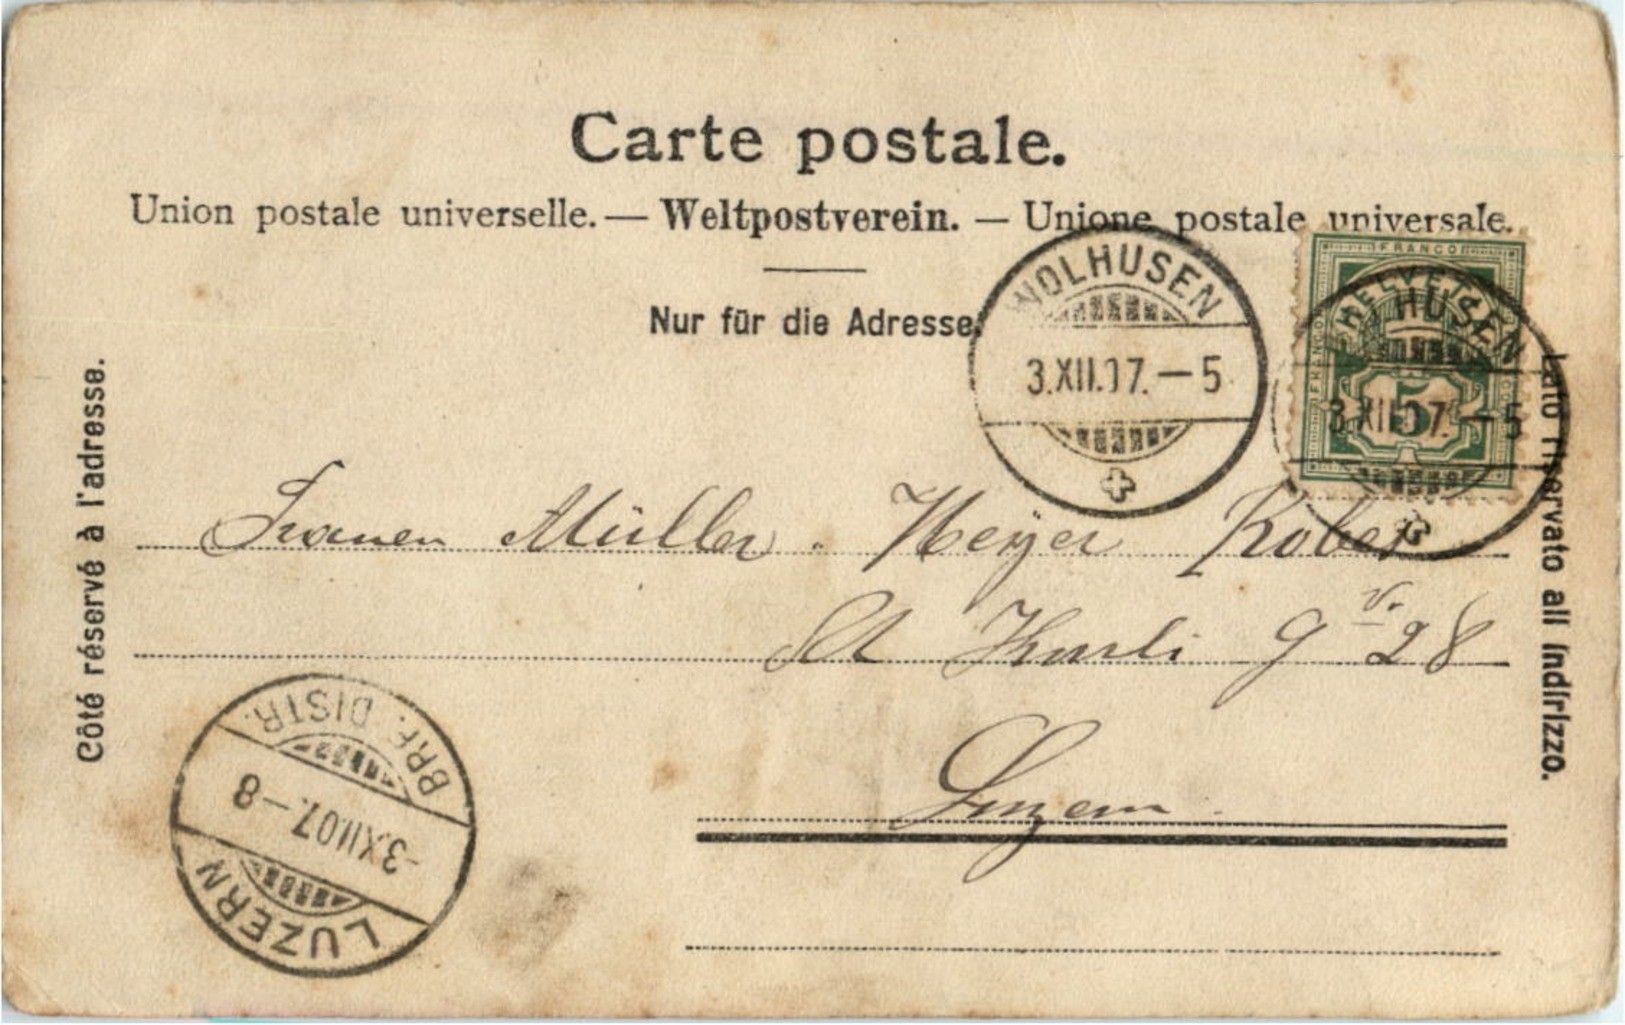 Carte postale.
Union postale universelle. — Weltpostverein. — Unione postale universale.
Nur für die Adresse.
Côté réservé à l'adresse.
Lato riservato all indirizzo.
WOLHUSEN
3.XII.07.—5
FRANCO
HELVETIA
5
WOLHUSEN
3.XII.07.—5
Frauen Müller. Meyer Kober
St Karli 28
Luzern
LUZERN
-3.XII.07.—8
BRF. DISTR.